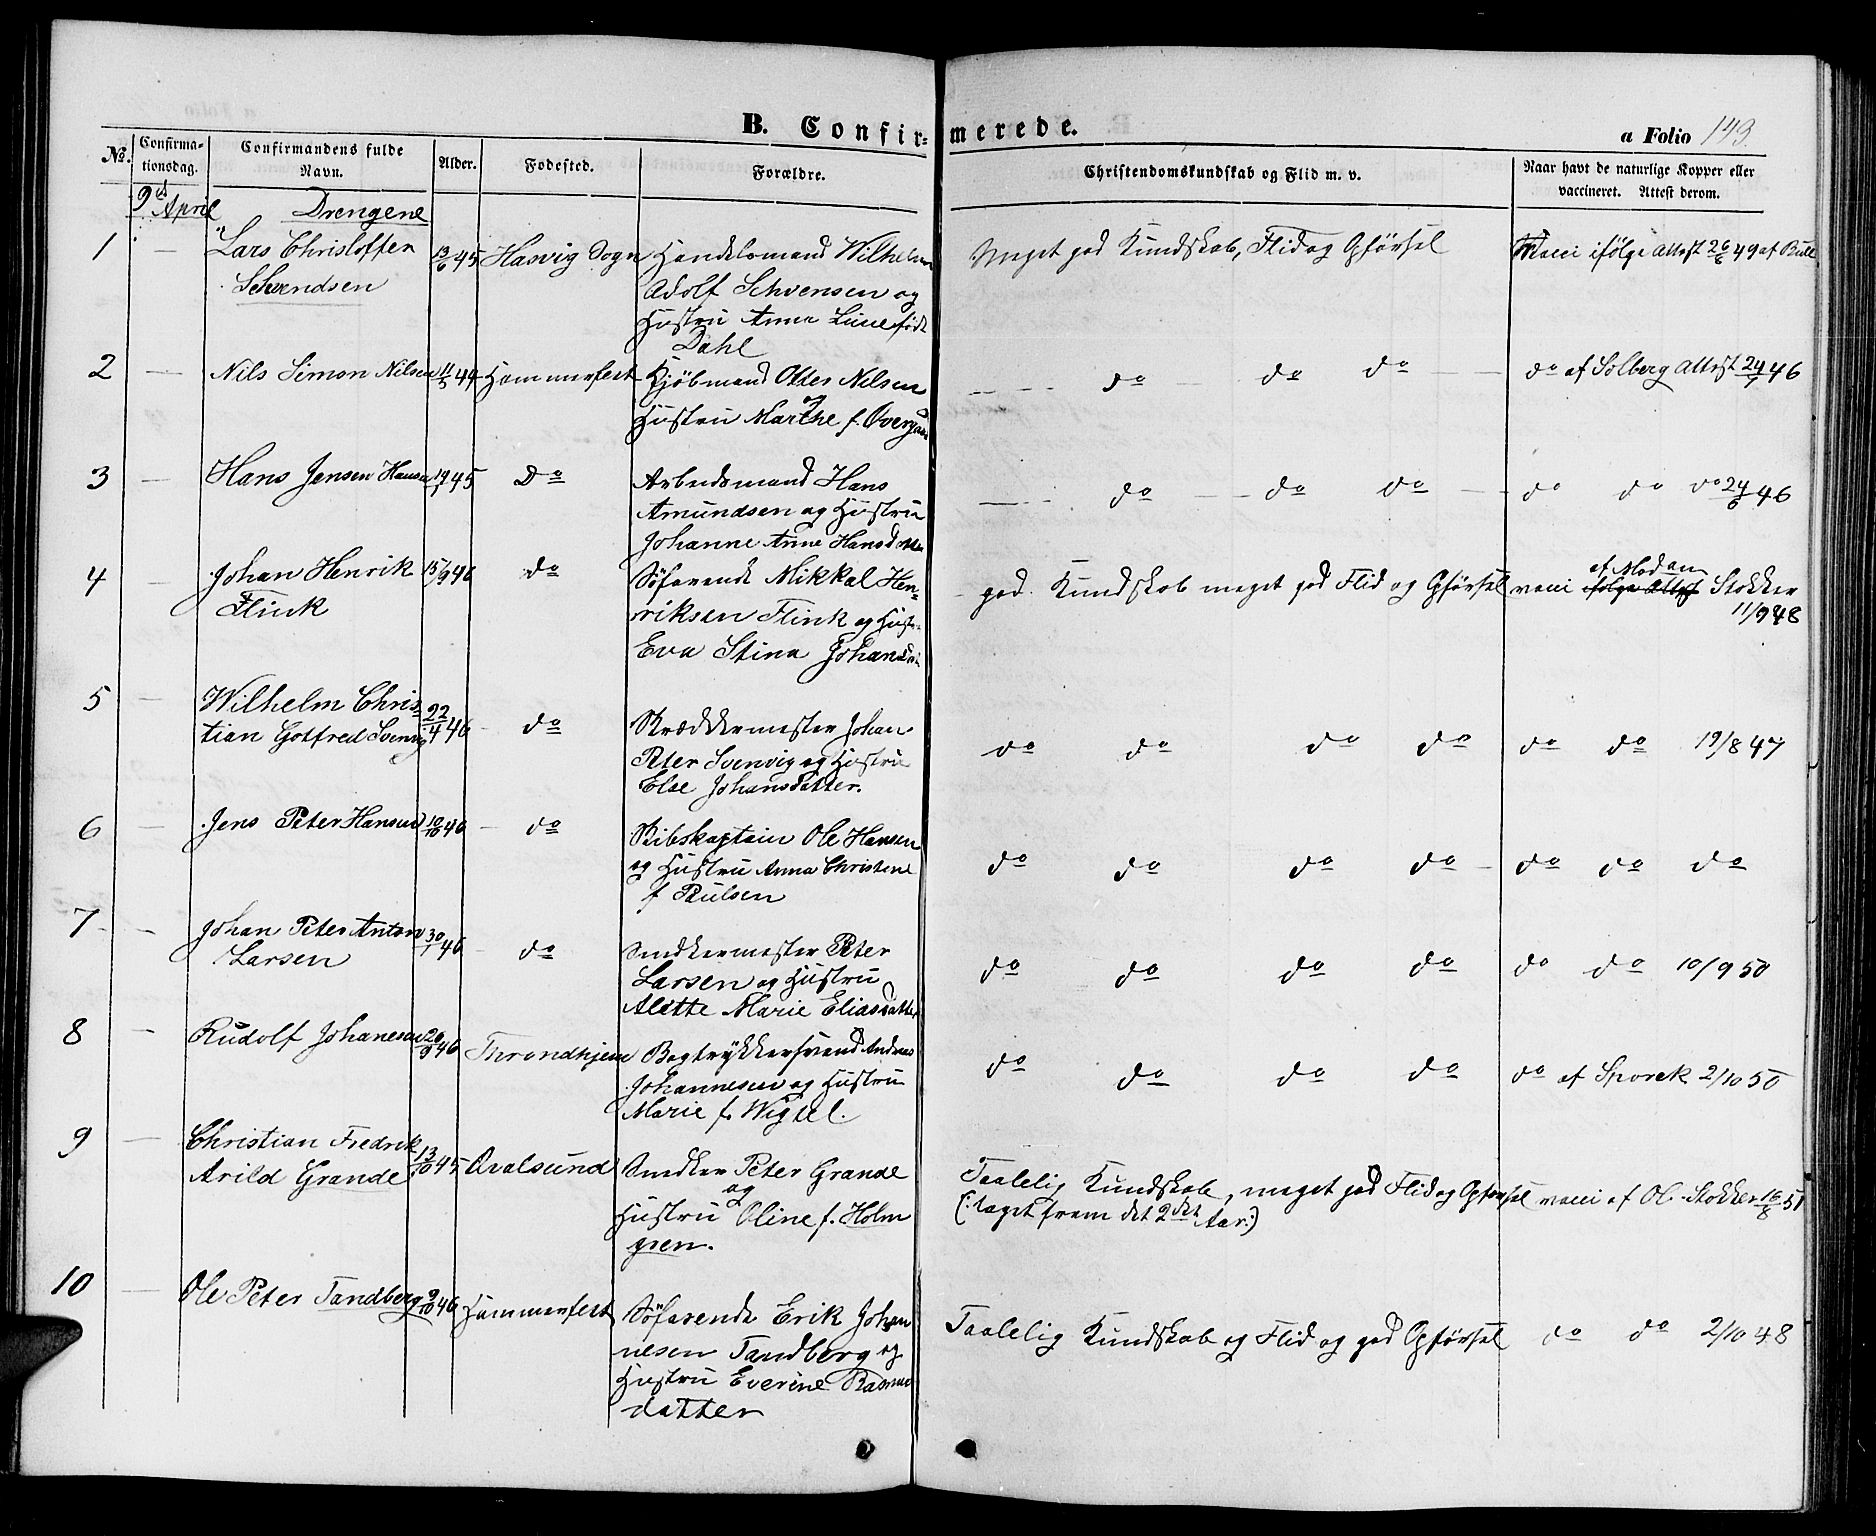 B. Confir-
merede.
a Folio 143.
No.
Confirma-
tionsdag.
Confirmandens fulde
Navn.
Alder.
Fødested.
Forældre.
Christendomskundskab og Flid m. v.
Naar havt de naturlige Kopper eller
vaccineret. Attest derom.
9de April
Drengene
1 — Lars Christoffer
Schvendsen
13/6 45
Hasvig Sogn
Handelsmand Wilhelm
Adolf Schvensen og
Hustru Anna Line født
Dahl
Meget god Kundskab, Flid og Opførsel
Vacci ifølge Attest 26/6 49 af Bull
2 — Nils Simon Nilsen
11/5 44
Hammerfest
Kjøbmand Otter Nilsen
og
Hustru Marthe f. Overgaard
do do do
do af Solberg Attest 24/7 46
3 — Hans Jensen Hansen
19/1 45
Do
Arbeidsmand Hans
Amundsen og Hustru
Johanne Anne Hansdatter
do do do
do do do 24/6 46
4 — Johan Henrik
Flink
15/9 46
do
Søfarende Mikkal Hen-
riksen Flink og Hustru
Eva Stina Johansdatter
god Kundskab meget god Flid og Opførsel
af Madam
vacci ifølge Attest Stokker
11/9 48
5 — Wilhelm Chris-
tian Gotfred Svenvig
22/4 46
do
Skræddermester Johan
Peter Svenvig og Hustru
Else Johansdatter.
do do do do
do do 19/8 47
6 — Jens Peter Hansen
10/10 46
do
Skibskaptain Ole Hansen
og Hustru Anna Christine
f Paulsen
do do do do
do do do
7 — Johan Peter Anton
Larsen
30/1 46
do
Snedkermester Peter
Larsen og Hustru
Alette Marie Eliasdatter
do do do do
do do 10/9 50
8 — Rudolf Johanesen
20/9 46
Throndhjem
Bogtrykkersvend Andreas
Johannesen og Hustru
Marie f. Wigtel.
do do do do
do af Sporek 2/10 50
9 — Christian Fredrik
Arild Grande
13/10 45
Qvalsund
Snedker Peter Grande
og
Hustru Oline f. Holm
gren.
Taalelig Kundskab, meget god Flid og Opførsel
(: taget frem det 2det Aar :)
vacci af Ol. Stokker 16/8 51
10 — Ole Peter Tandberg
9/10 46
Hammerfest
Søfarende Erik Johan
nesen Tandberg og
Hustru Everine Rasmus
datter
Taalelig Kundskab og Flid og god Opførsel
do do 2/10 48